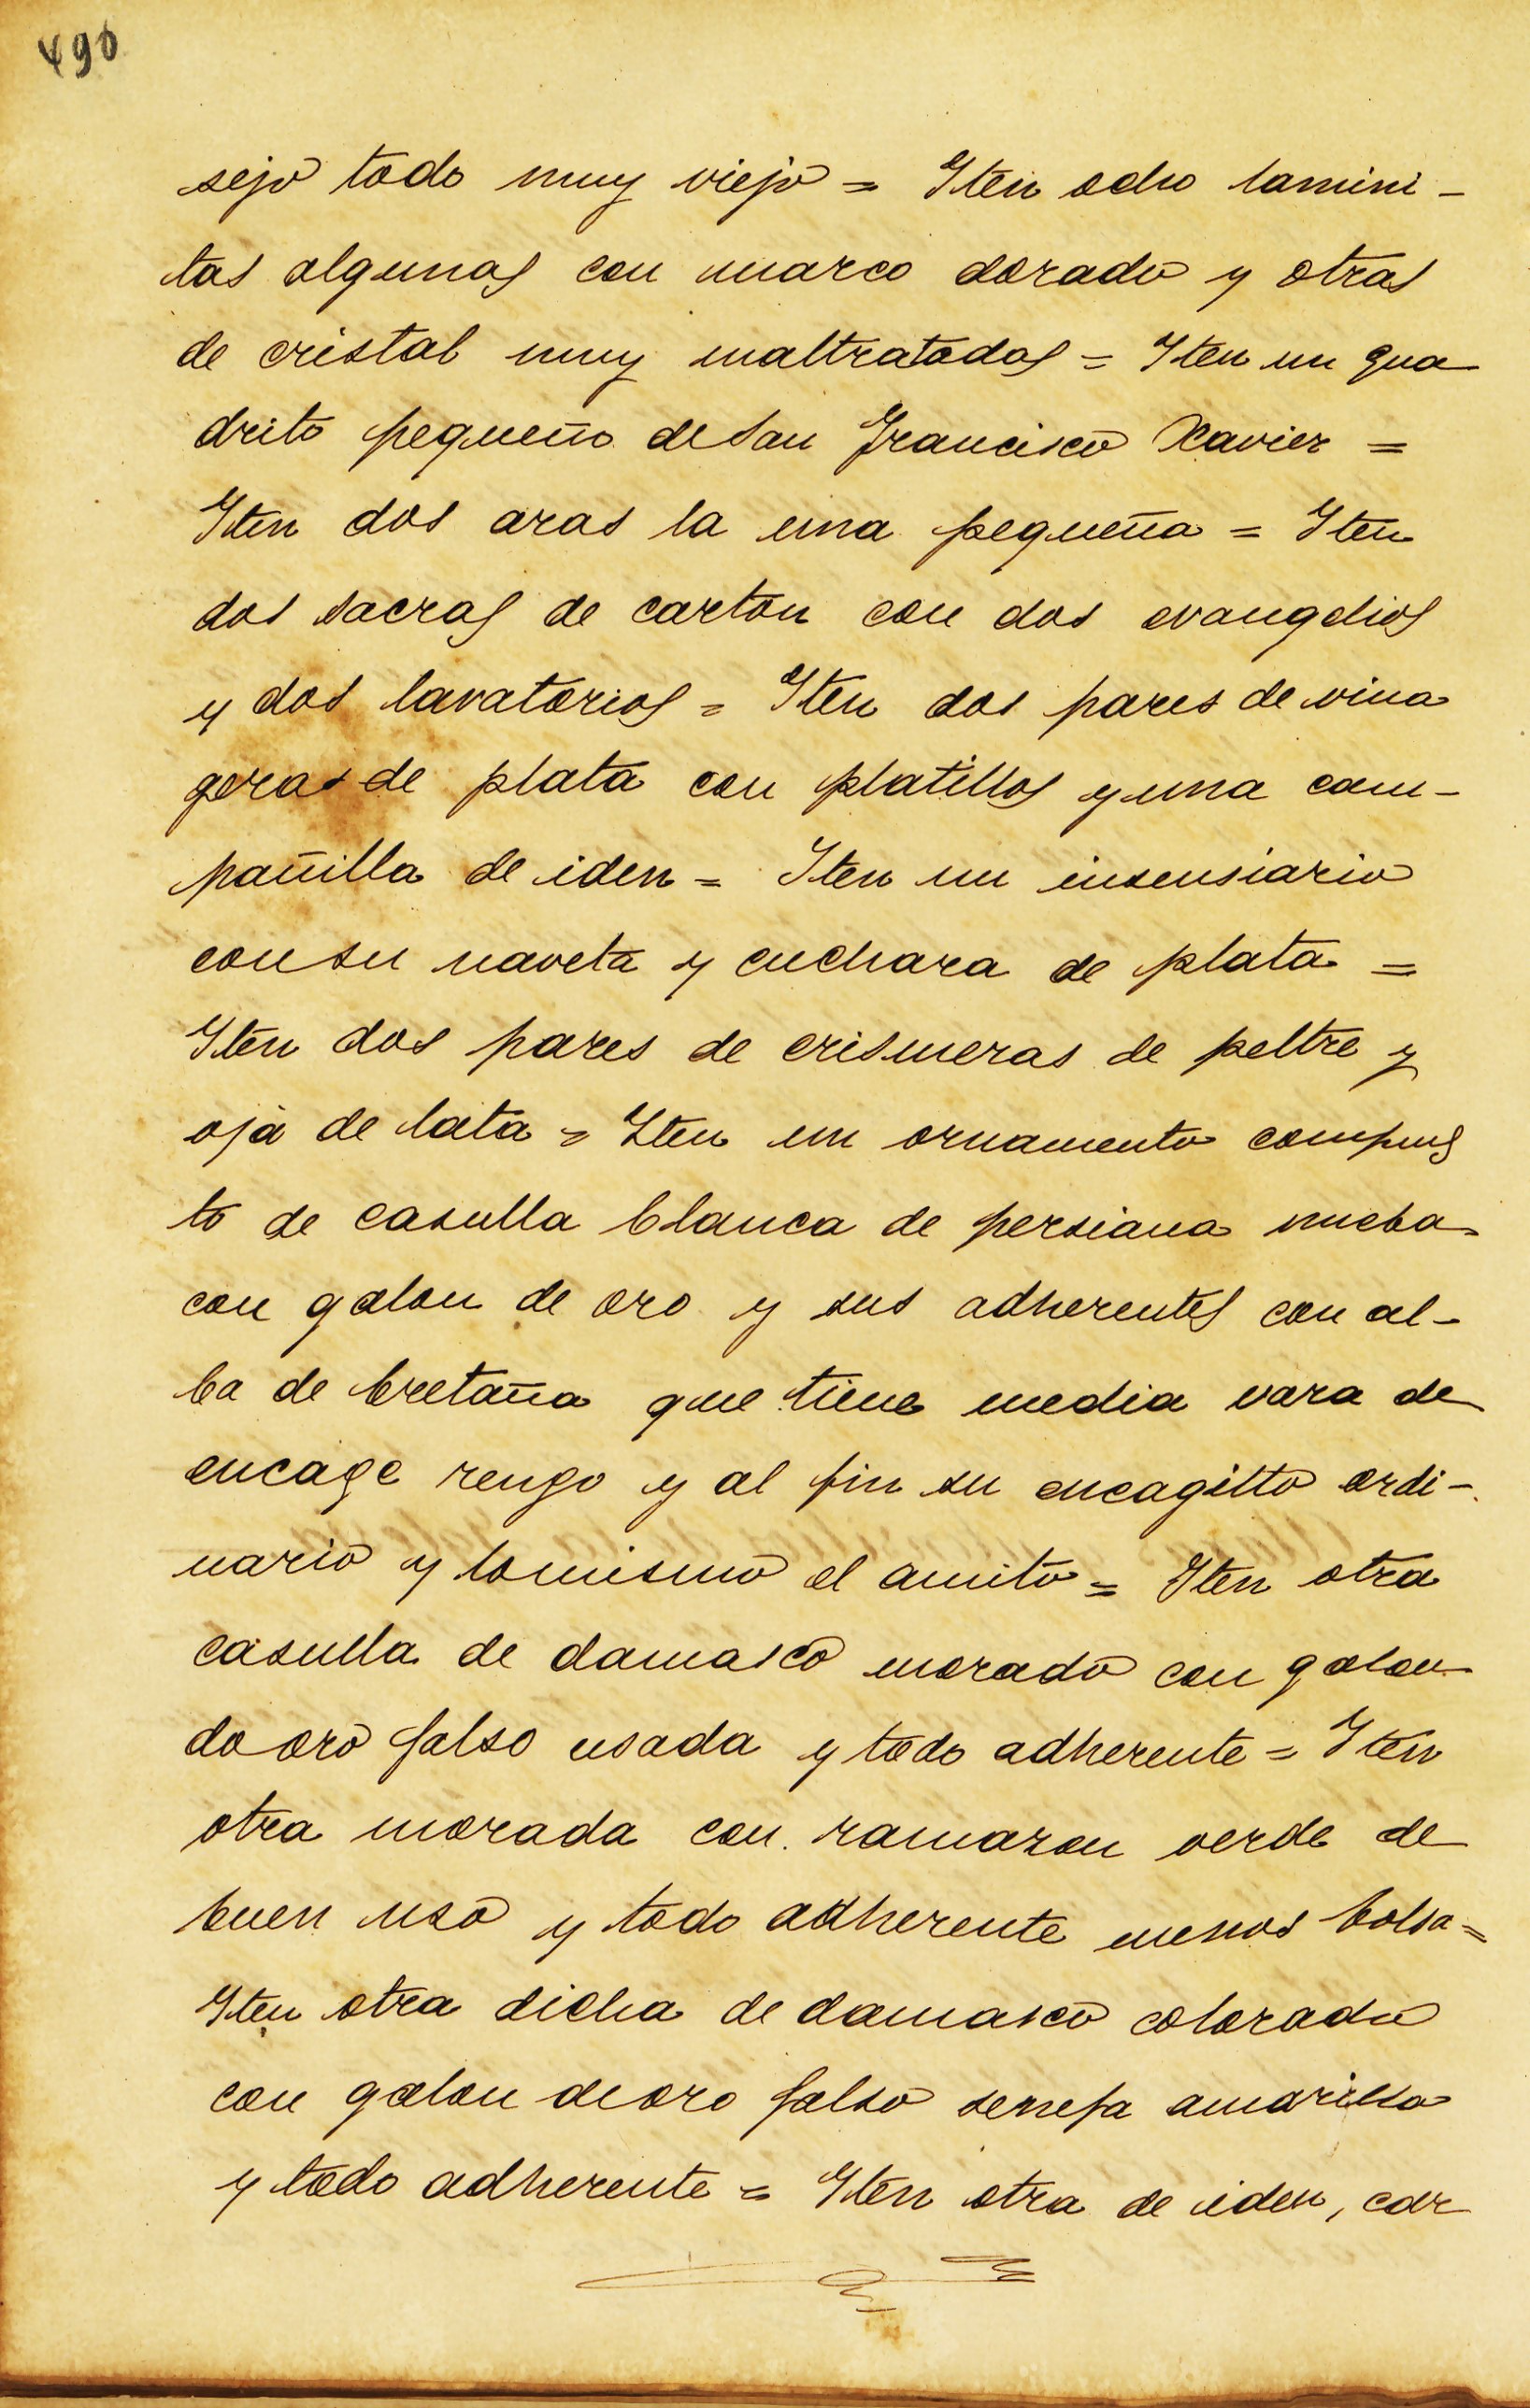 490
sejo todo muy viejo = Iten ocho lamini-
tas algunas con marco dorado y otras
de cristal muy maltratados = Iten un qua
drito pequeño de San Francisco Xavier =
Iten dos aras la una pequeña = Iten
dos sacras de carton con dos evangelios
y dos lavatorios = Iten dos pares de vina
geras de plata con platillos y una cam-
panilla de iden = Iten un insensiario
con su naveta y cuchara de plata =
Iten dos pares de crismeras de peltre y
oja de lata = Iten un ornamento compues
to de casulla blanca de persiana nueba
con galon de oro y sus adherentes con al-
ba de bretaña que tiene media vara de
encage rengo y al fin su encagitto ordi-
nario y lo mismo el amito = Iten otra
casulla de damasco morado con galon
do oro falso usada y todo adherente = Iten
otra morada con ramazon verde de
buen uso y todo adherente menos bolsa =
Iten otra dicha de damasco colorado
con galon de oro falso senefa amarilla
y todo adherente = Iten otra de iden, cor